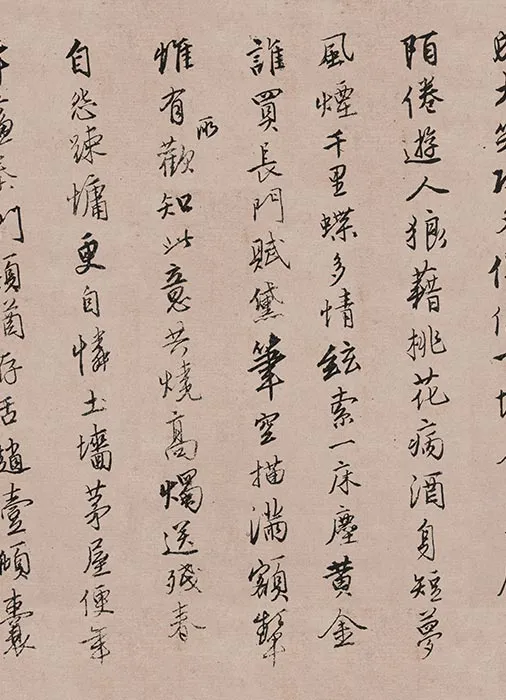 陌倦遊人狼藉桃花病酒身短夢
風煙千里蝶多情鉉索一床塵黃金
誰買長門賦黛筆空描滿額顰
惟有所歡知此意共燒高燭送殘春
自怨踈慵更自憐土墻茅屋便年
門存舌趙壹囊